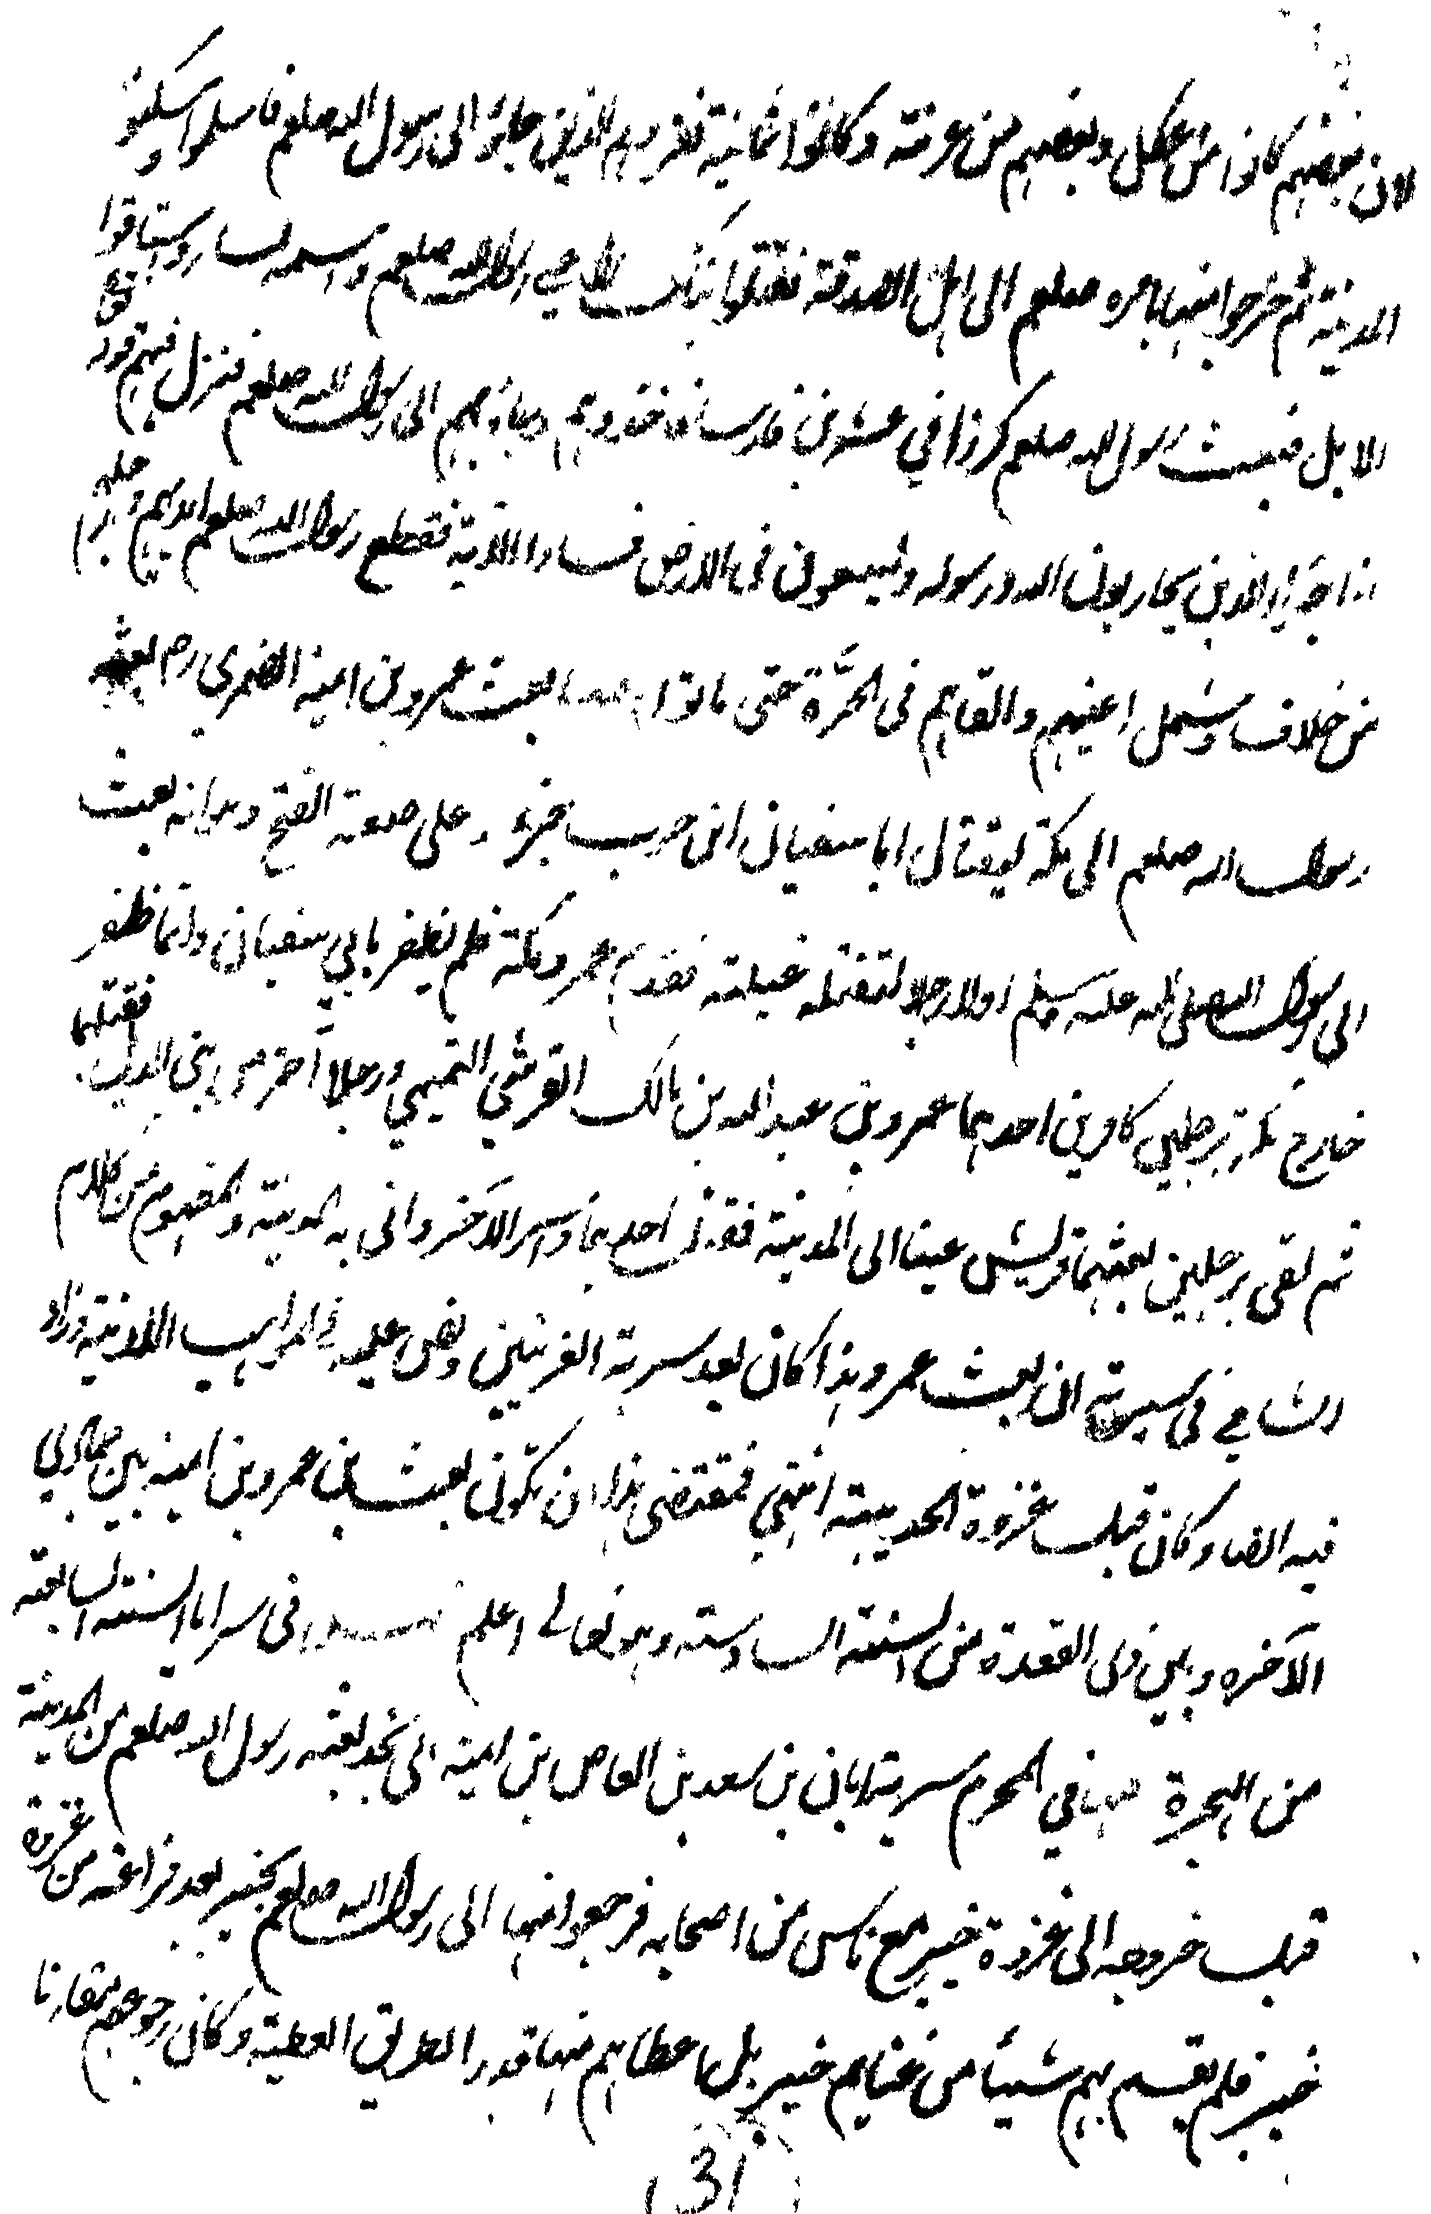 لان بعضهم كانوا من عكل وبعضهم من عرنة وكانوا ثمانية نفر وهم الذين جاؤا الى رسول الله صلعم فاسلموا وسكنوا
المدينة ثم خرجوا منها بامره صلعم الى ابل الصدقة فقتلوا الراعي لرسول الله صلعم واسمه يسار واستاقوا
الابل فبعث رسول الله صلعم كرزا في عشرين فارسا فاخذوهم وجاؤ بهم الى رسول الله صلعم فنزل فيهم قوله تعالى
انما جزاء الذين يحاربون الله ورسوله ويسعون فى الارض فسادا الاية فقطع رسول الله صلعم ايديهم وارجلهم
من خلاف وسمل اعينهم والقاهم فى الحرة حتى ماتوا بعث عمرو بن امية الضمري رض بعثه
رسول الله صلعم الى مكة ليقتال ابا سفيان ابن حرب جزاء على صنعة القبح وهو انه بعث
الى رسول الله صلى الله عليه وسلم اولا رجلا لتقتله غيلته فقدم عمرو مكة فلم يظفر بابي سفيان وانما ظفر
خارج مكة برجلين كافرين احدهما عمرو بن عبد الله بن مالك القرشي التميمي ورجلا آخر من بني الديل فقتلهما
ثم لقى برجلين بعثهما قريش عينا الى المدينة فقتل احدهما واسر الآخر واتى به المدينة والمفهوم من كلام
الشامي فى سيرته ان بعث عمرو هذا كان بعد سرية العرنيين ونص عليه فى المواهب اللدنية وزاد
فيه ايضا وكان قبل غزوة الحديبية انتهى فمقتضى هذا ان تكون بعث بن عمرو بن امية بين جمادى
الآخره وبين ذى القعدة من السنة السادسة وهو تعالى اعلم فى سرايا السنة السابعة
من الهجرة منها في المحرم سرية ابان بن سعد بن العاص بن امية الى نجد بعثه رسول الله صلعم من المدينة
قبل خروجه الى غزوة خيبر مع ناس من اصحابه فرجعوا منها الى رسول الله صلعم بخيبر بعد فراغه من غزوة
خيبر فلم يقسم لهم شيئا من غنايم خيبر بل اعطاهم منها قدرا بطريق العطية وكان رجوعهم مقارنا
131